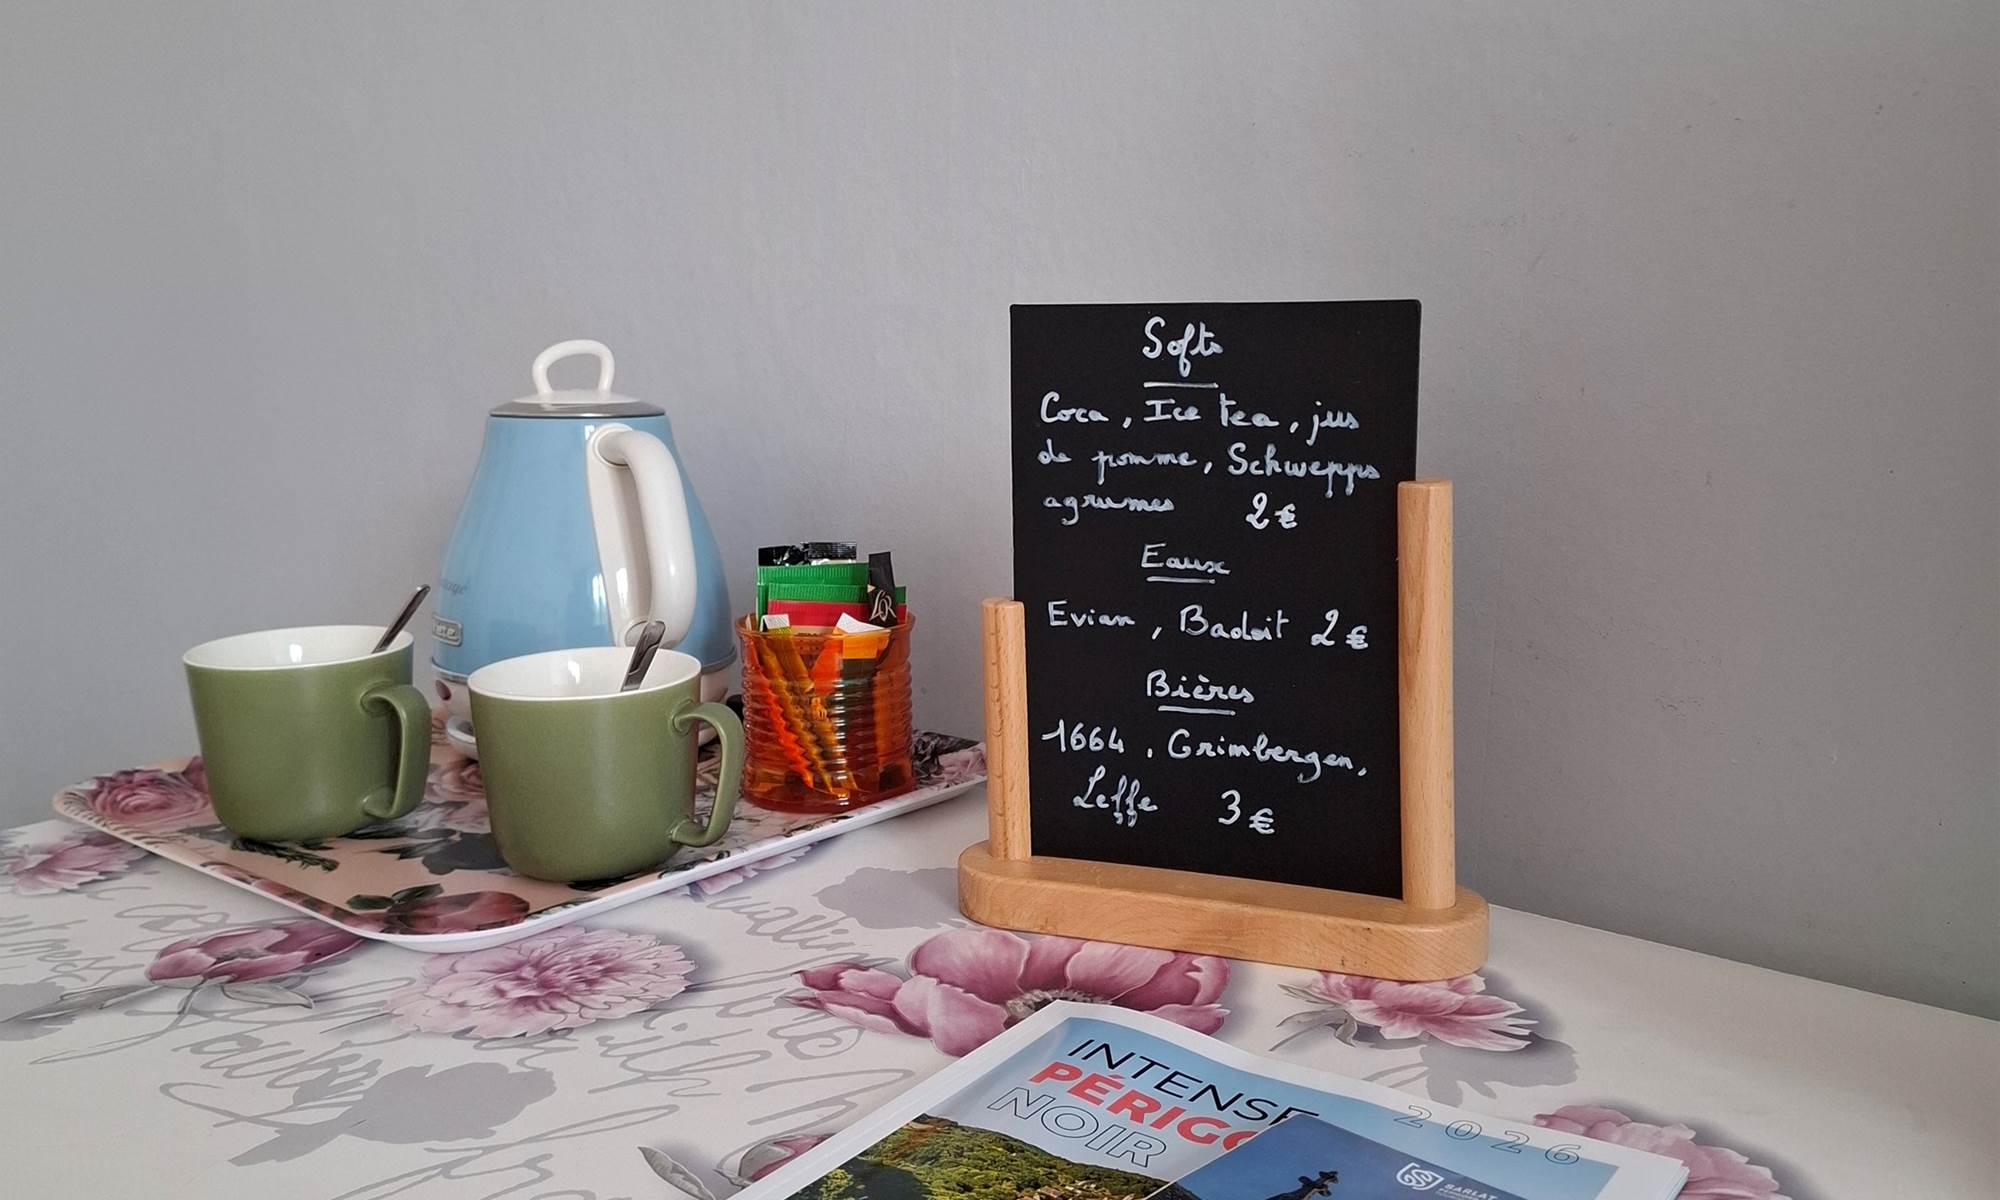 Softs
Coca, Ice tea, jus
de pomme, Schwepps
agrumes 2€
Eaux
Evian, Badoit 2€
Bières
1664, Grimbergen,
Leffe 3€
L'OR
INTENSE
PÉRIGO
NOIR
2026
SARLAT